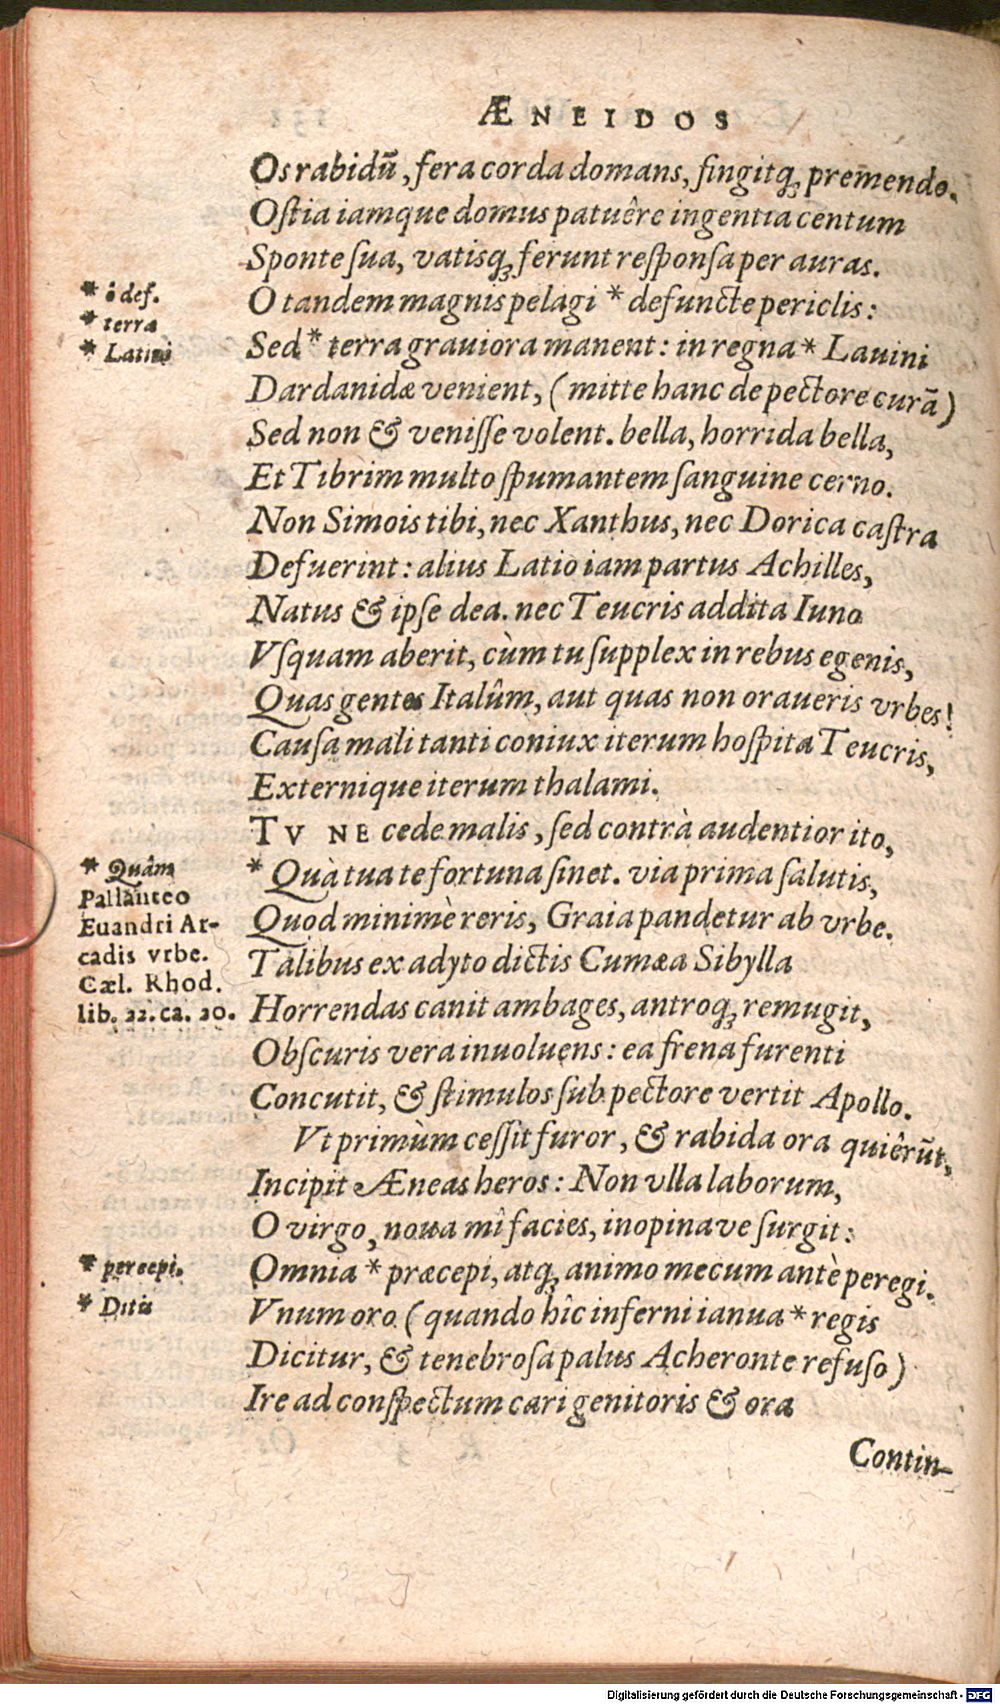 ÆNEIDOS
Os rabidū, fera corda domans, fingitq́; premendo.
Ostia iamque domus patuêre ingentia centum
Sponte sua, vatisq́; ferunt responsa per auras.
* ô def.
O tandem magnis pelagi * defuncte periclis:
* terra
Sed * terra grauiora manent: in regna * Lauini
* Latini
Dardanidæ venient, (mitte hanc de pectore curā)
Sed non & venisse volent. bella, horrida bella,
Et Tibrim multo spumantem sanguine cerno.
Non Simois tibi, nec Xanthus, nec Dorica castra
Defuerint: alius Latio iam partus Achilles,
Natus & ipse dea. nec Teucris addita Iuno
Vsquam aberit, cùm tu supplex in rebus egenis,
Quas gentes Italûm, aut quas non oraueris vrbes!
Causa mali tanti coniux iterum hospita Teucris,
Externique iterum thalami.
TV NE cede malis, sed contrà audentior ito,
* Quâm
Pallanteo
Euandri Ar-
cadis vrbe.
Cæl. Rhod.
lib. 22. ca. 20.
* Quà tua te fortuna sinet. via prima salutis,
Quod minimè reris, Graia pandetur ab vrbe.
Talibus ex adyto dictis Cumæa Sibylla
Horrendas canit ambages, antroq́; remugit,
Obscuris vera inuoluens: ea frena furenti
Concutit, & stimulos sub pectore vertit Apollo.
Vt primùm cessit furor, & rabida ora quiêrūt,
Incipit Æneas heros: Non vlla laborum,
O virgo, noua mî facies, inopinave surgit:
* percepi.
Omnia * præcepi, atq́; animo mecum antè peregi.
* Ditis
Vnum oro (quando hîc inferni ianua * regis
Dicitur, & tenebrosa palus Acheronte refuso)
Ire ad conspectum cari genitoris & ora
Contin-
Digitalisierung gefördert durch die Deutsche Forschungsgemeinschaft - DFG